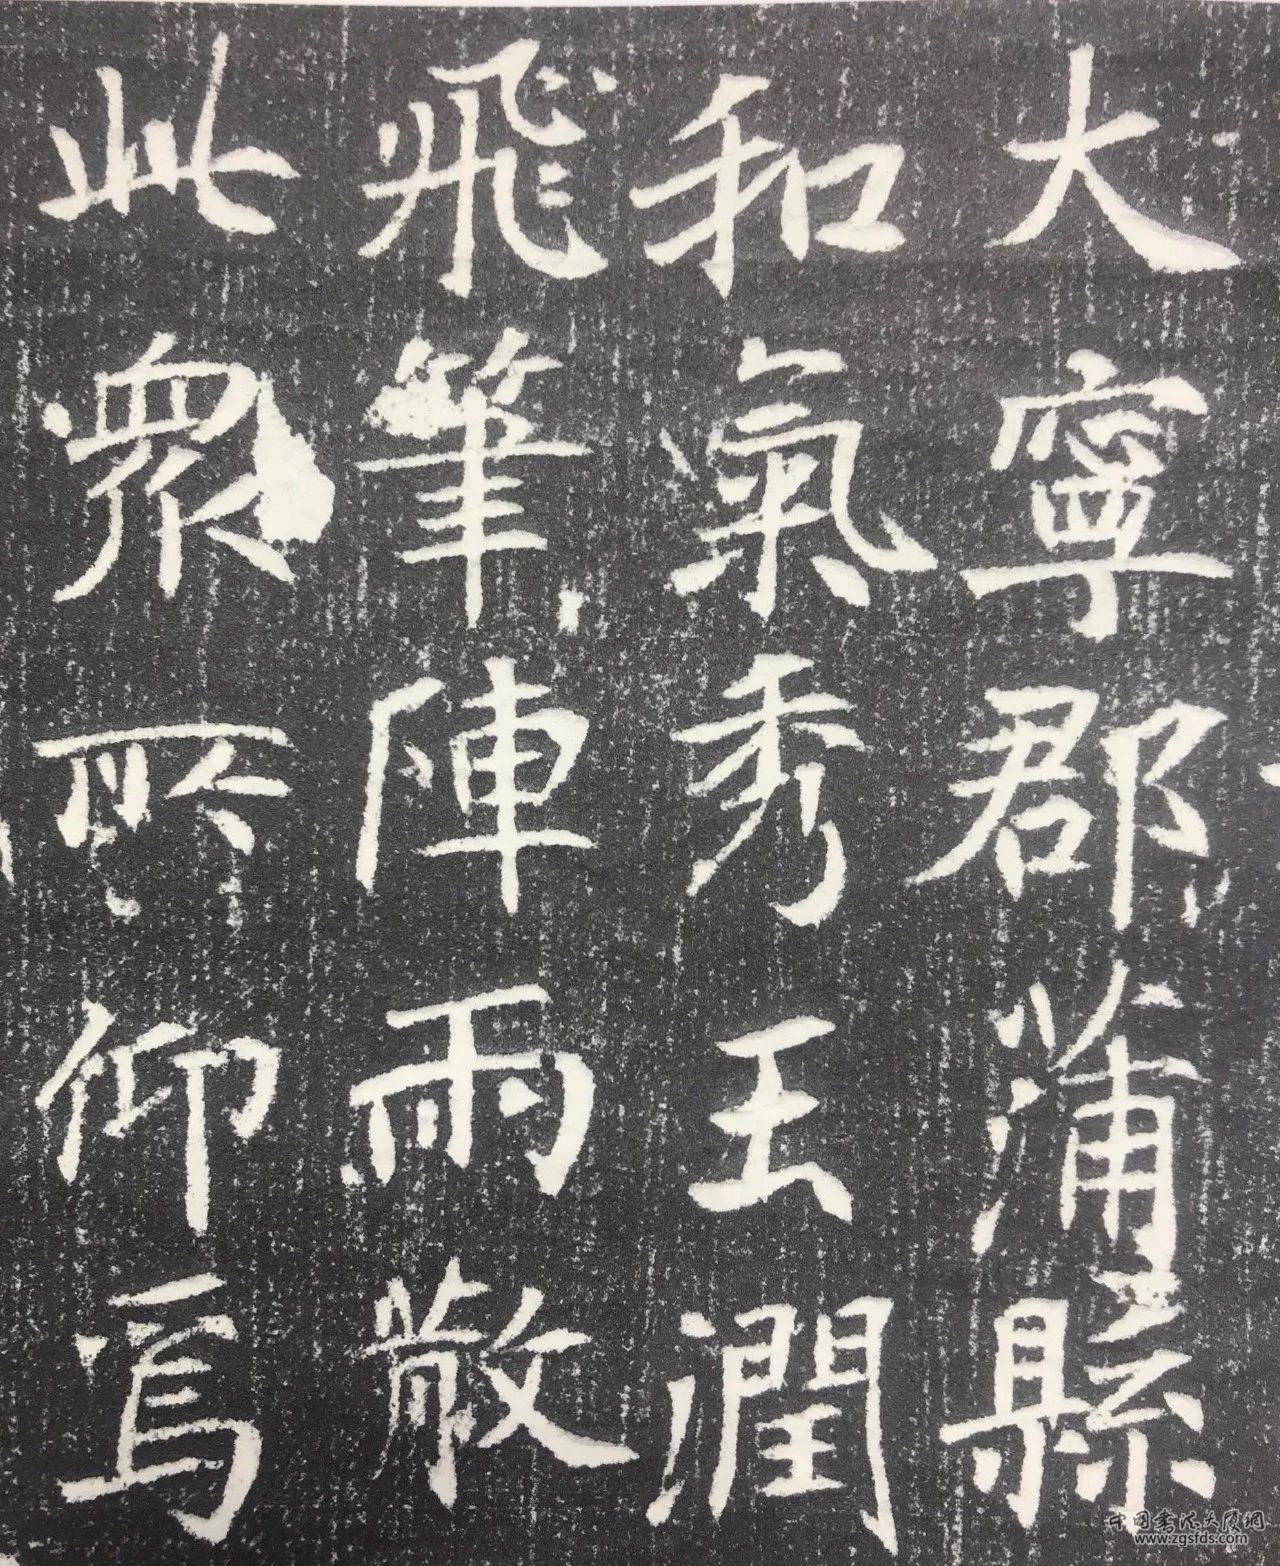 大寧郡蒲縣
和氣秀玉潤
飛筆陣雨散
此衆所仰焉
中国书法大厦网
www.zgsfds.com